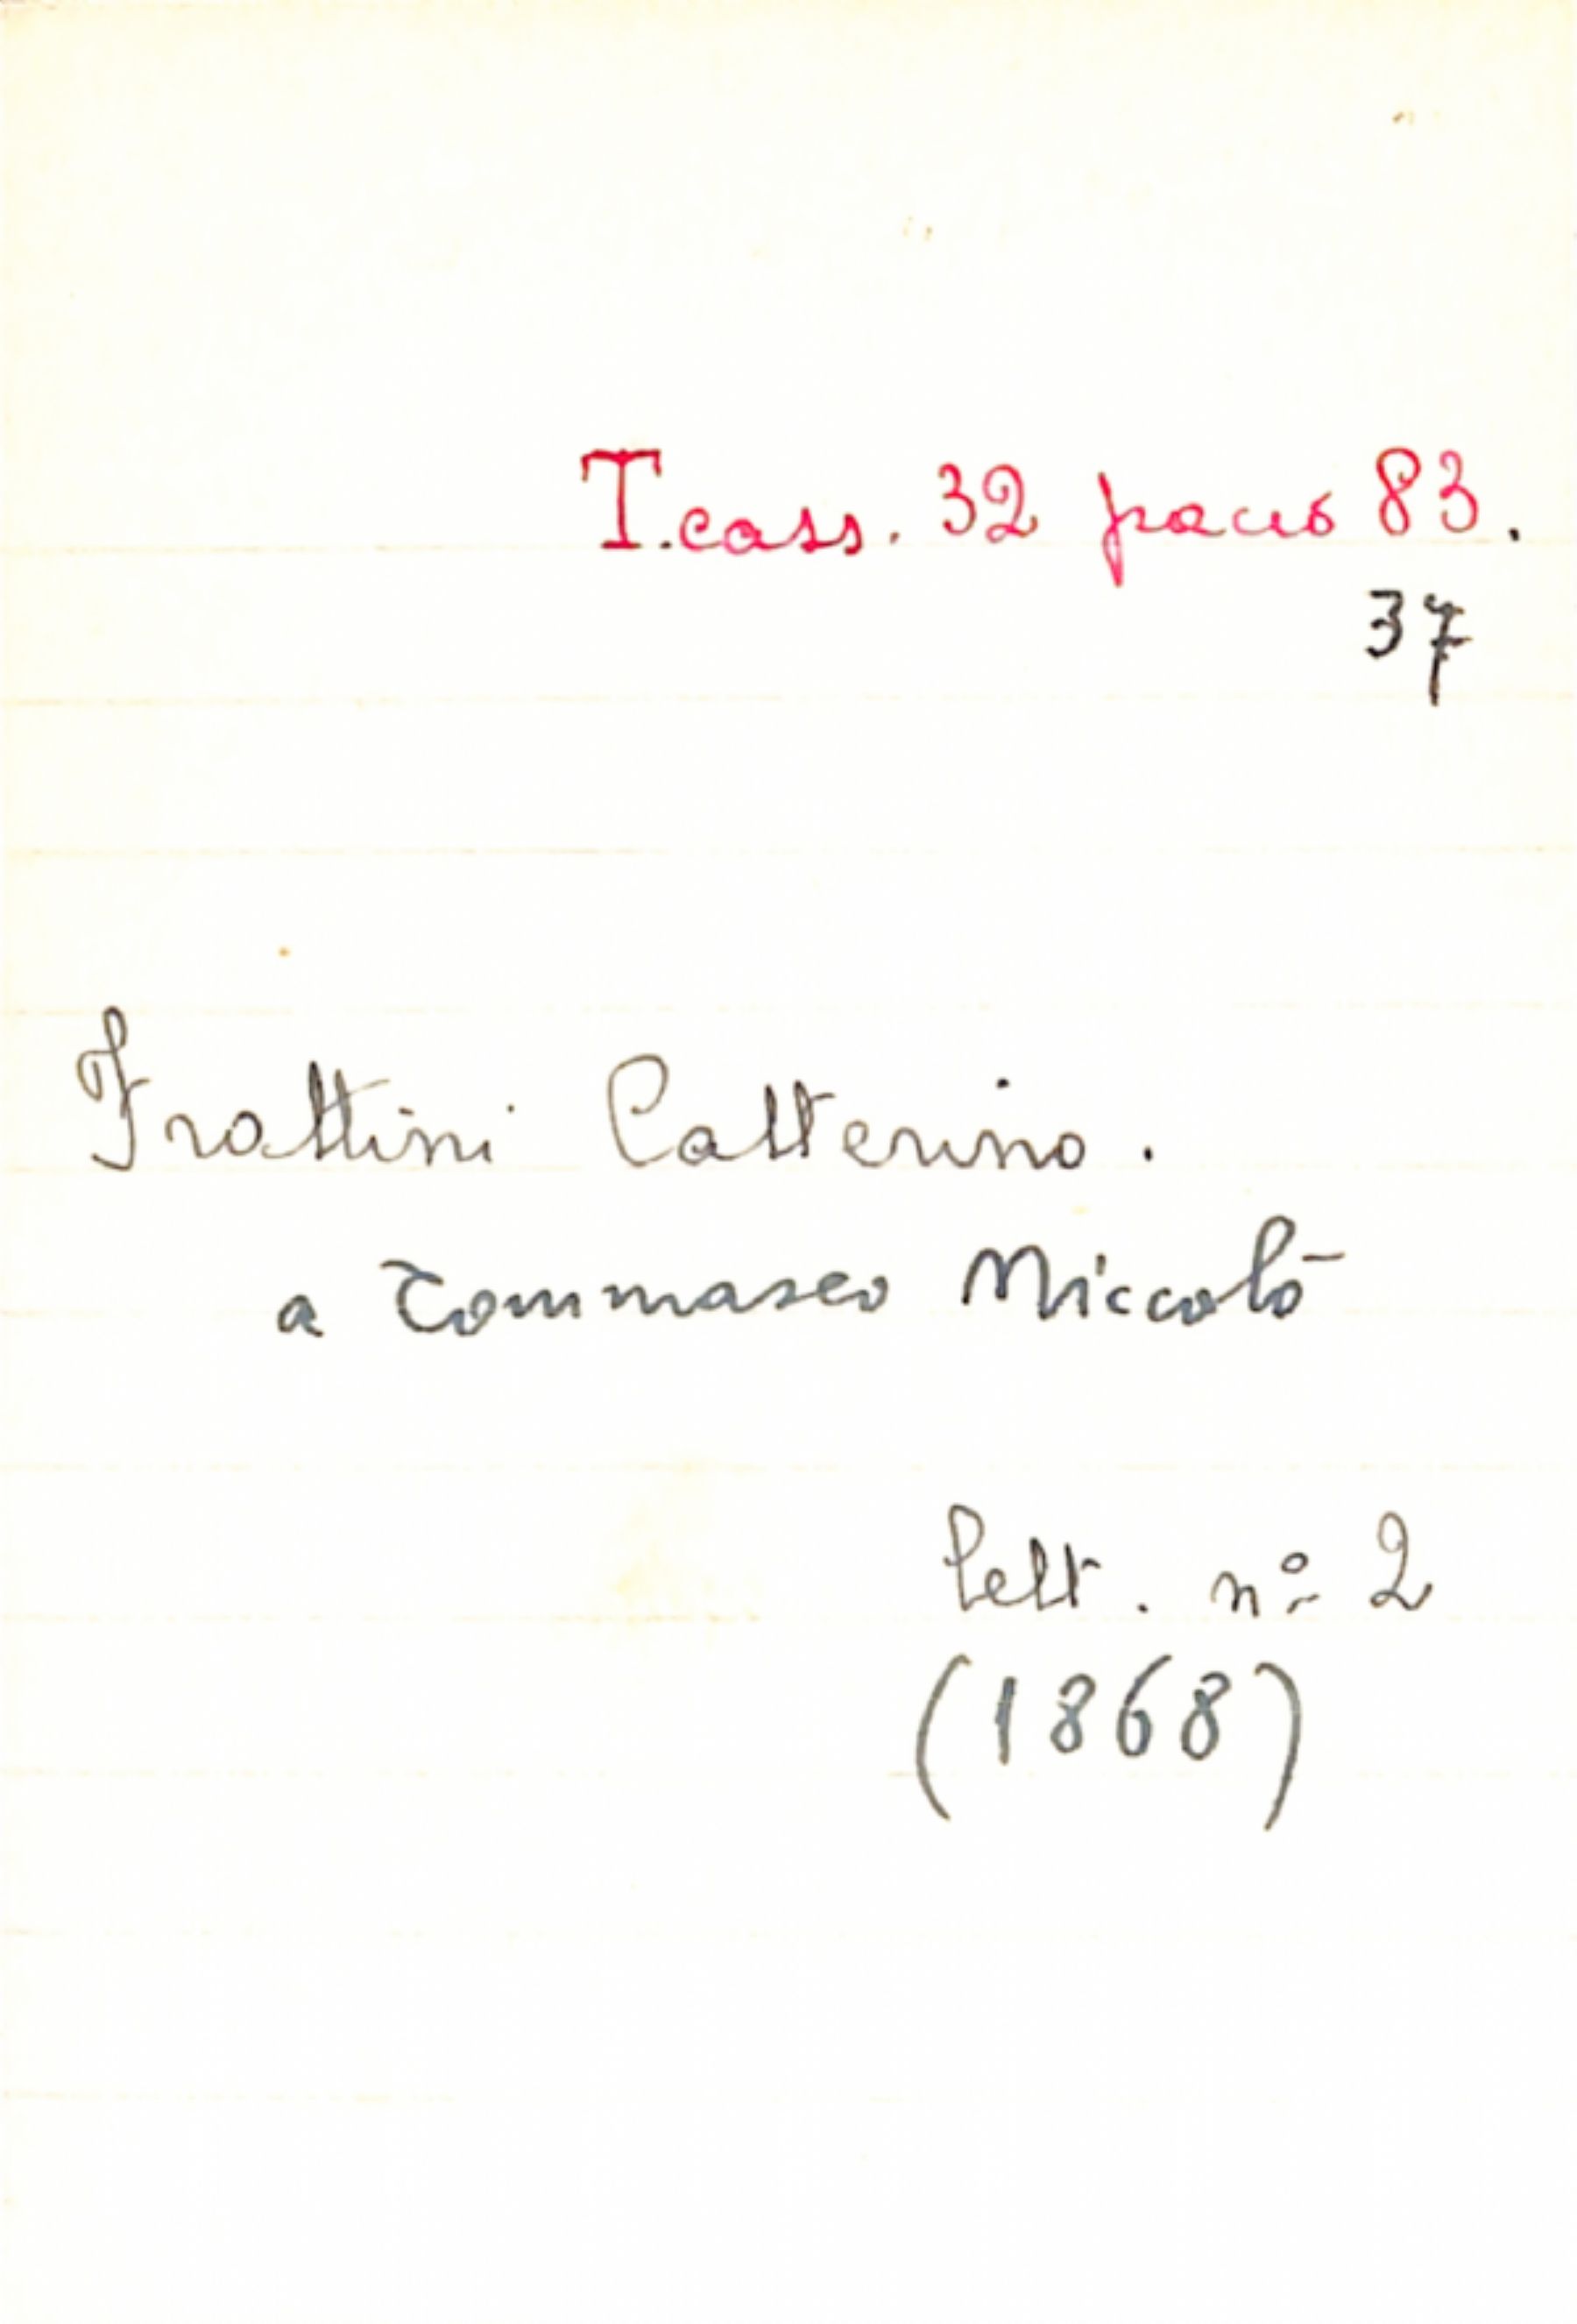 T. cass. 32 pacco 83.
37
Frattini Catterino.
a Tommaseo Niccolò
lett. nº 2
(1868)